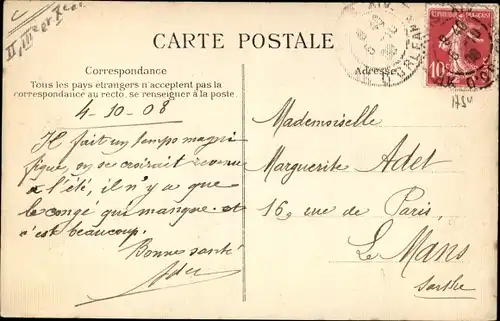 II, III et I
CARTE POSTALE
Correspondance
Tous les pays étrangers n'acceptent pas la
correspondance au recto, se renseigner à la poste.
4-10-08
Il fait un temps magni
fique, on se croirait revenu
à l'été, il n'y a que
le congé qui manque et
c'est beaucoup.
Bonne santé
Adresse
Mademoiselle
Marguerite Adet
16, rue de Paris,
Le Mans
Sarthe
10